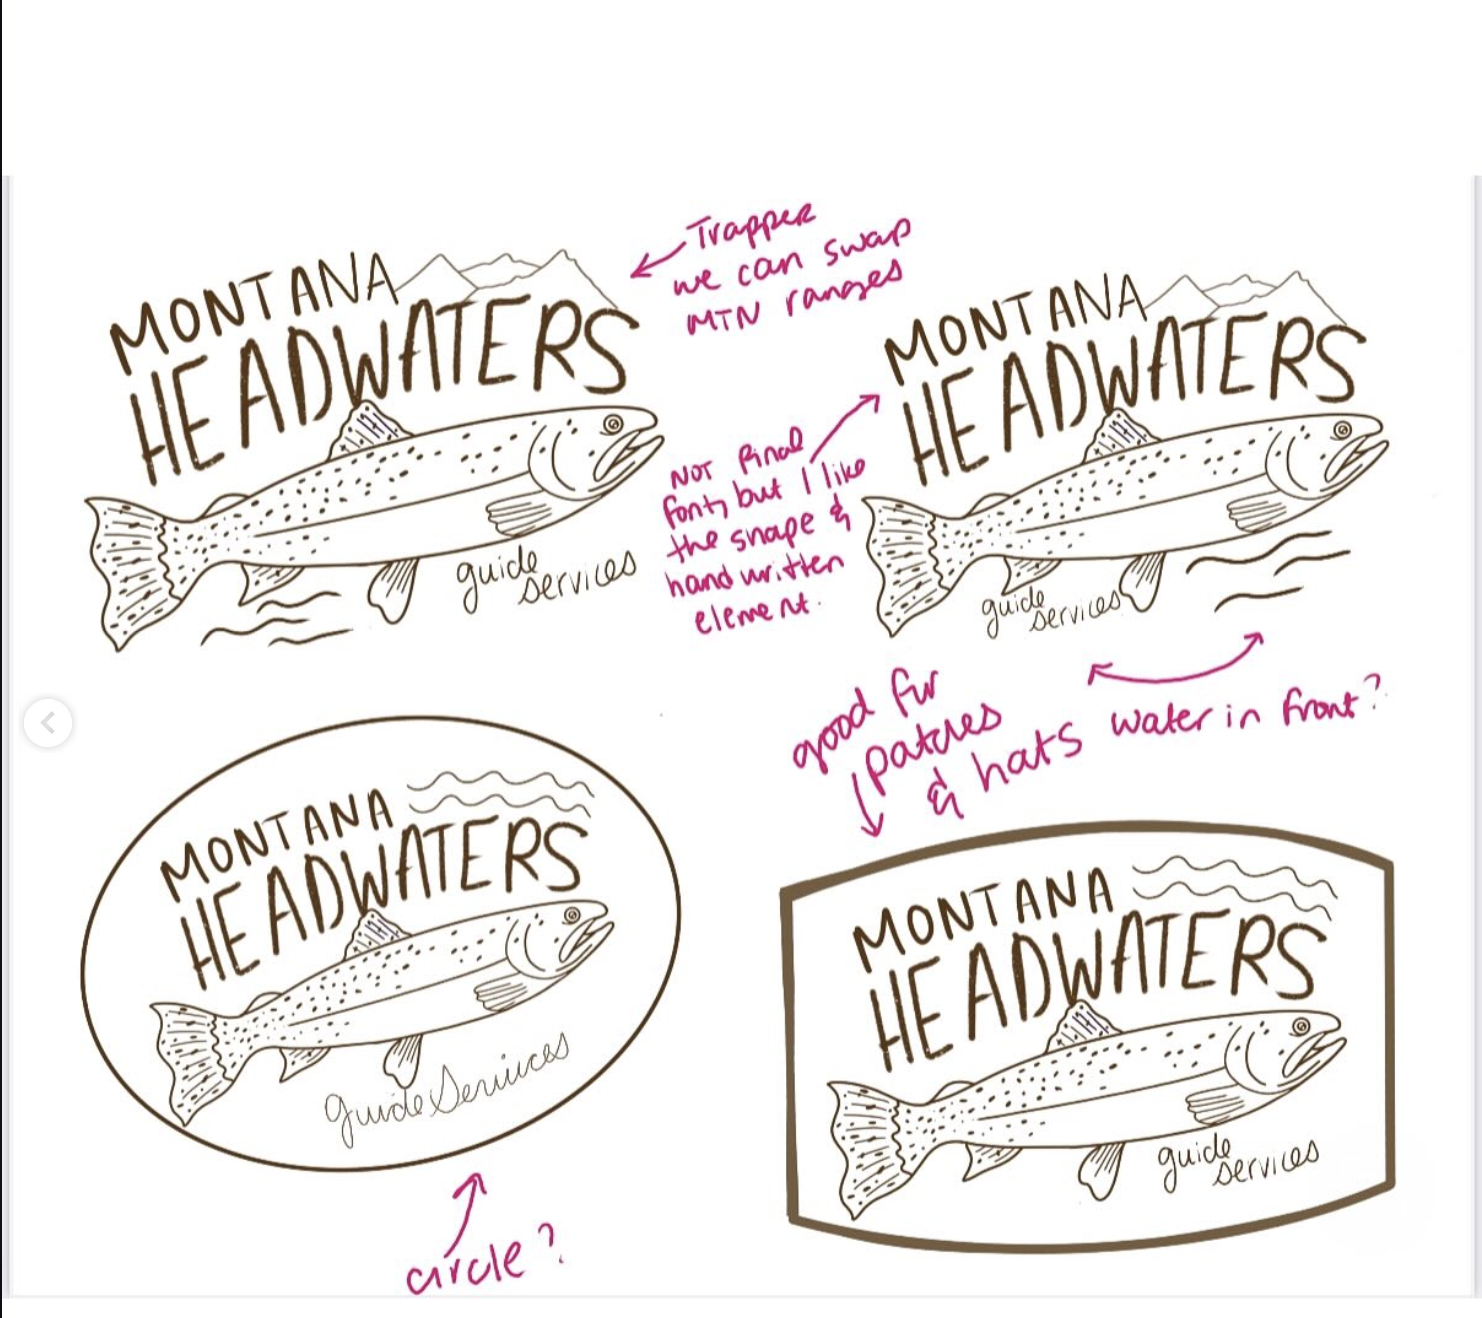 MONTANA
HEADWATERS
guide
services
Trapper
we can swap
MTN ranges
NOT final
font, but I like
the shape &
hand written
element.
MONTANA
HEADWATERS
guide
services
good fur
patches
& hats
water in front?
MONTANA
HEADWATERS
guide Services
circle?
MONTANA
HEADWATERS
guide
services